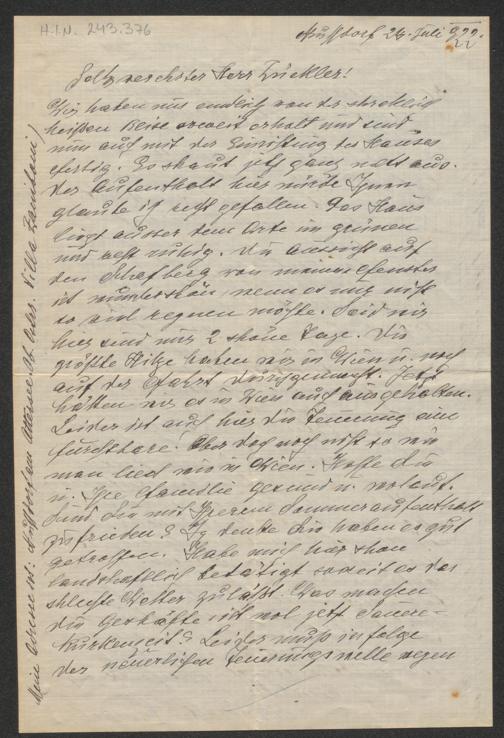 H.I.N. 243.376
Nußdorf 24. Juli 922.
22
Sehr verehrter Herr Zückler!
Wir haben uns endlich von der schrecklich
heißen Reise soweit erholt und sind
nun auch mit der Einrichtung des Hauses
fertig. Es schaut jetzt ganz nett aus.
Der Aufenthalt hier würde Ihnen
glaube ich recht gefallen. Das Haus
liegt ausser dem Orte im grünen
und sehr ruhig. Die Aussicht auf
den Schafberg von meinem Fenster
ist wunderschön, wenn es nur nicht
so viel regnen möchte. Seid wir
hier sind nur 2 schöne Tage. Die
größte Hitze haben wir in Wien u. noch
auf der Fahrt durchgemacht. Jetzt
hätten wir es in Wien auch ausgehalten.
Leider ist auch hier die Teuerung eine
furchtbare. Aber doch noch nicht so wie
man liest wie in Wien. Hoffe Sie
u. Ihre Familie gesund u. wohlauf.
Sind Sie mit Ihrem Sommeraufenthalt
zufrieden? Ich denke Sie haben es gut
getroffen. Habe mich hier schon
landschaftlich betätigt soweit es das
schlechte Wetter zuläßt. Was machen
die Geschäfte ist wol jetzt Sauere-
kurkenzeit? Leider muß in folge
der neuerlichen Teuerungswelle wegen
Meine Adresse ist: Nußdorf am Attersee Ob. Oster. Villa